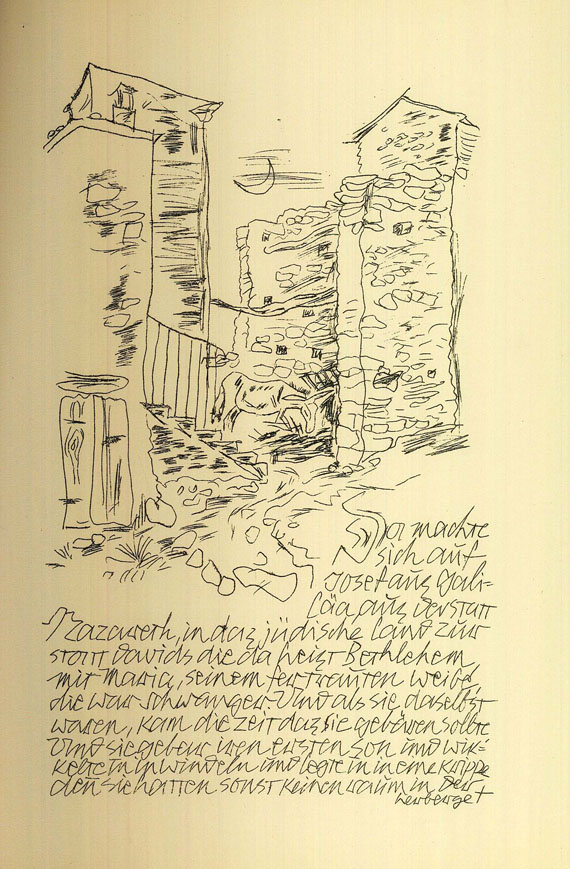 Do machte
sich auf
Josef aus Gali=
läa aus der statt
Nazareth, in das jüdische land zur
statt Davids die da heist Bethlehem,
mit Maria, seinem fertrauten weibe,
die war schwanger. Und als sie daselbst
waren, kam die zeit das sie gebären solte
Und sie gebar iren ersten son und wik=
kelte in in windeln und legte in in eine krippe
den sie hatten sonst keinen raum in der
herberge +